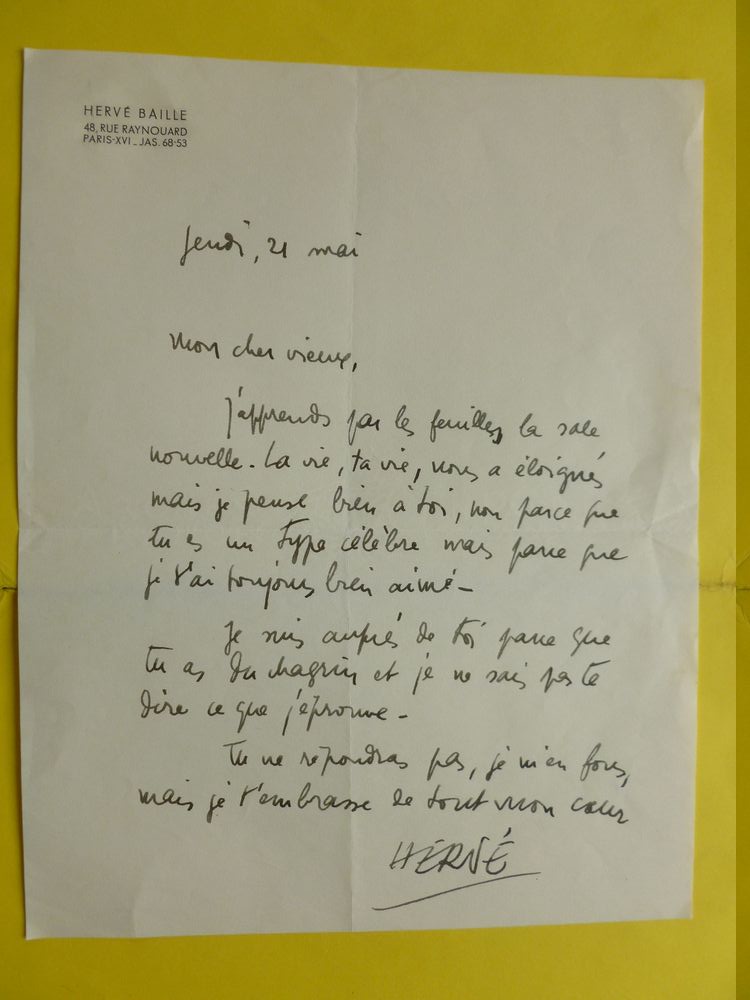 HERVÉ BAILLE
48, RUE RAYNOUARD
PARIS-XVI _ JAS. 68-53
Jeudi, 21 mai
Mon cher vieux,
J'apprends par les feuilles la sale
nouvelle. La vie, ta vie, nous a éloignés
mais je pense bien à toi, non parce que
tu es un type célèbre mais parce que
je t'ai toujours bien aimé _
Je suis auprès de toi parce que
tu as du chagrin et je ne sais pas te
dire ce que j'éprouve _
Tu ne répondras pas, je m'en fous,
mais je t'embrasse de tout mon cœur
HERVÉ